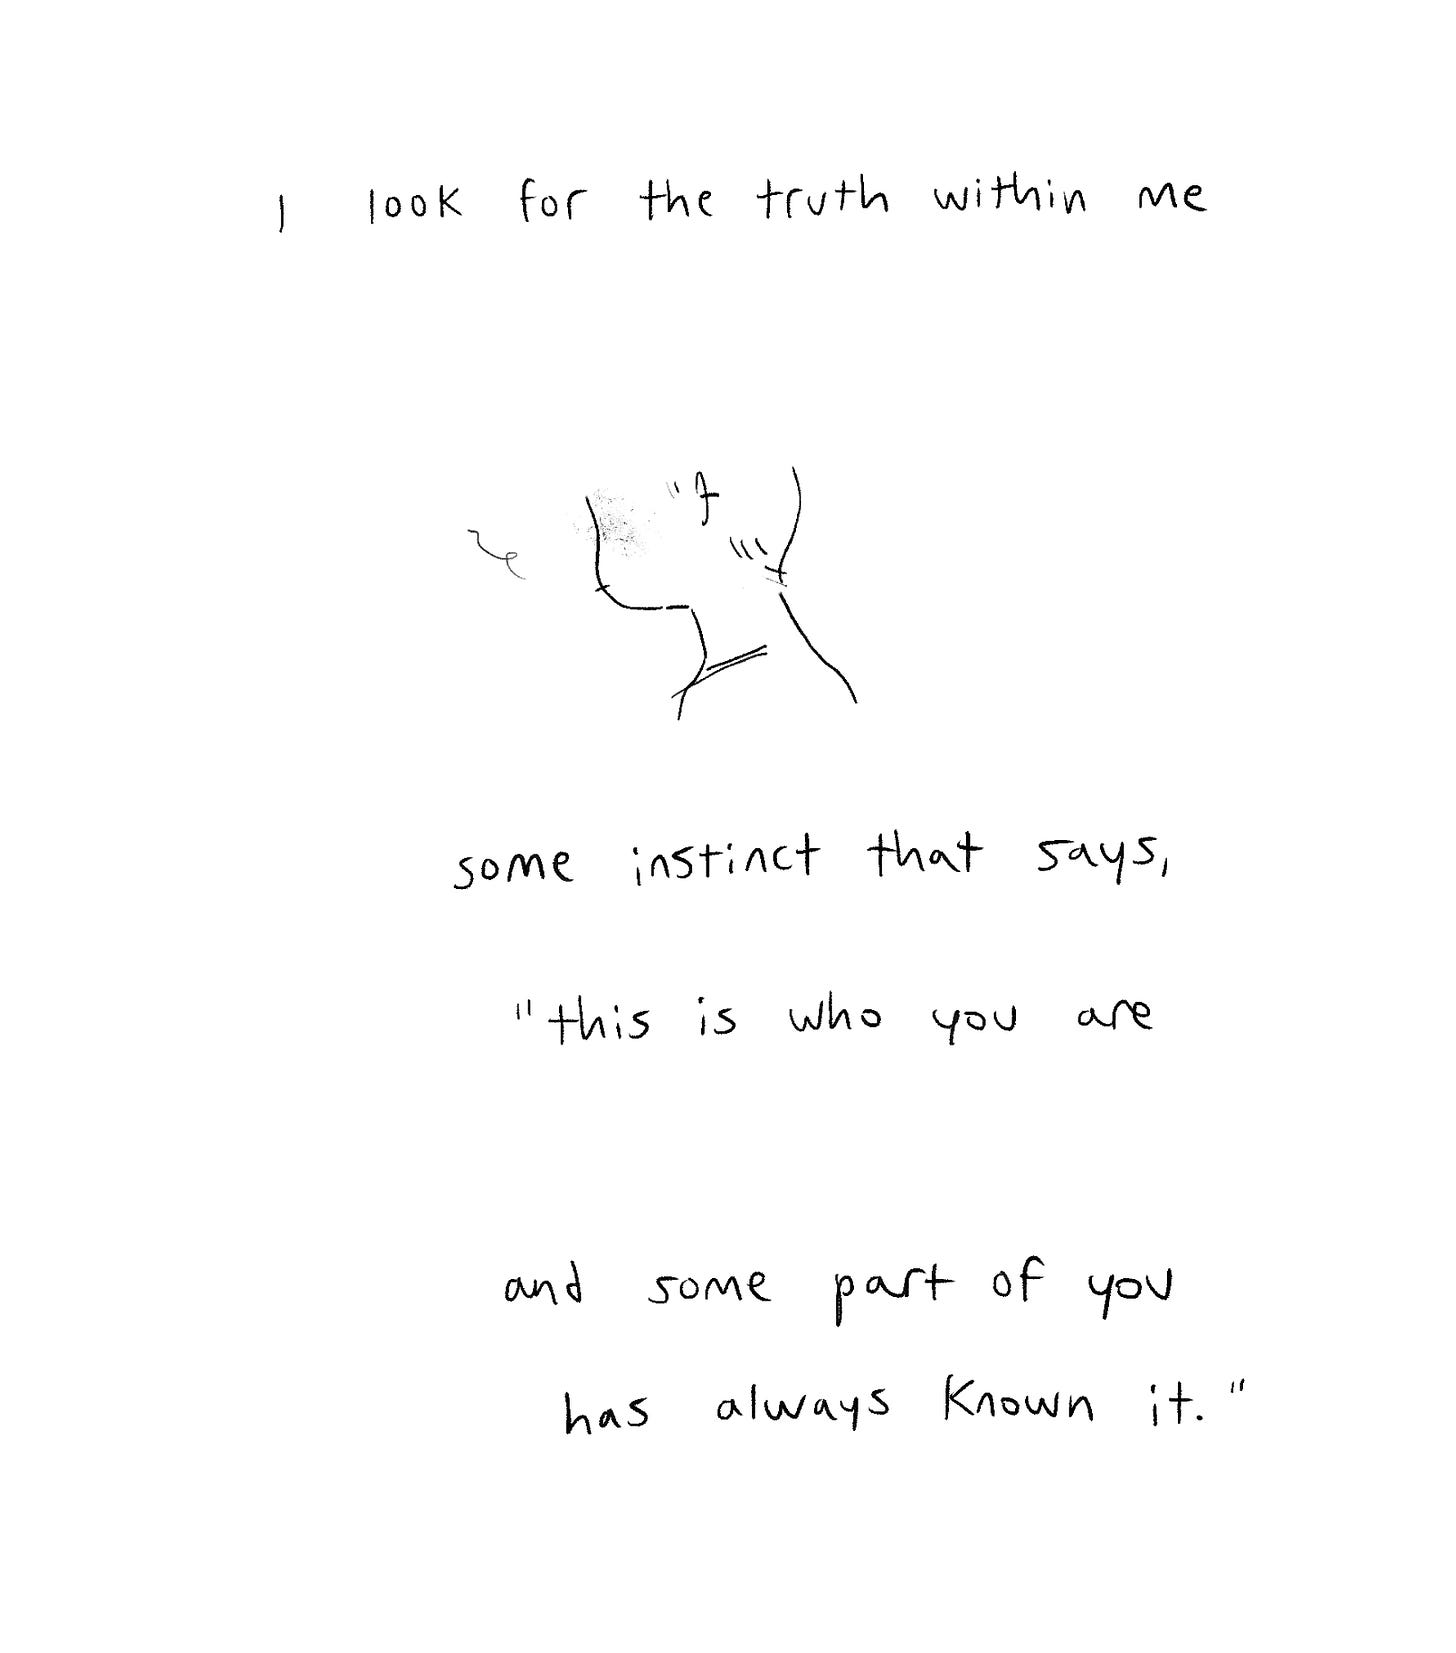 I look for the truth within me
some instinct that says,
"this is who you are
and some part of you
has always known it."